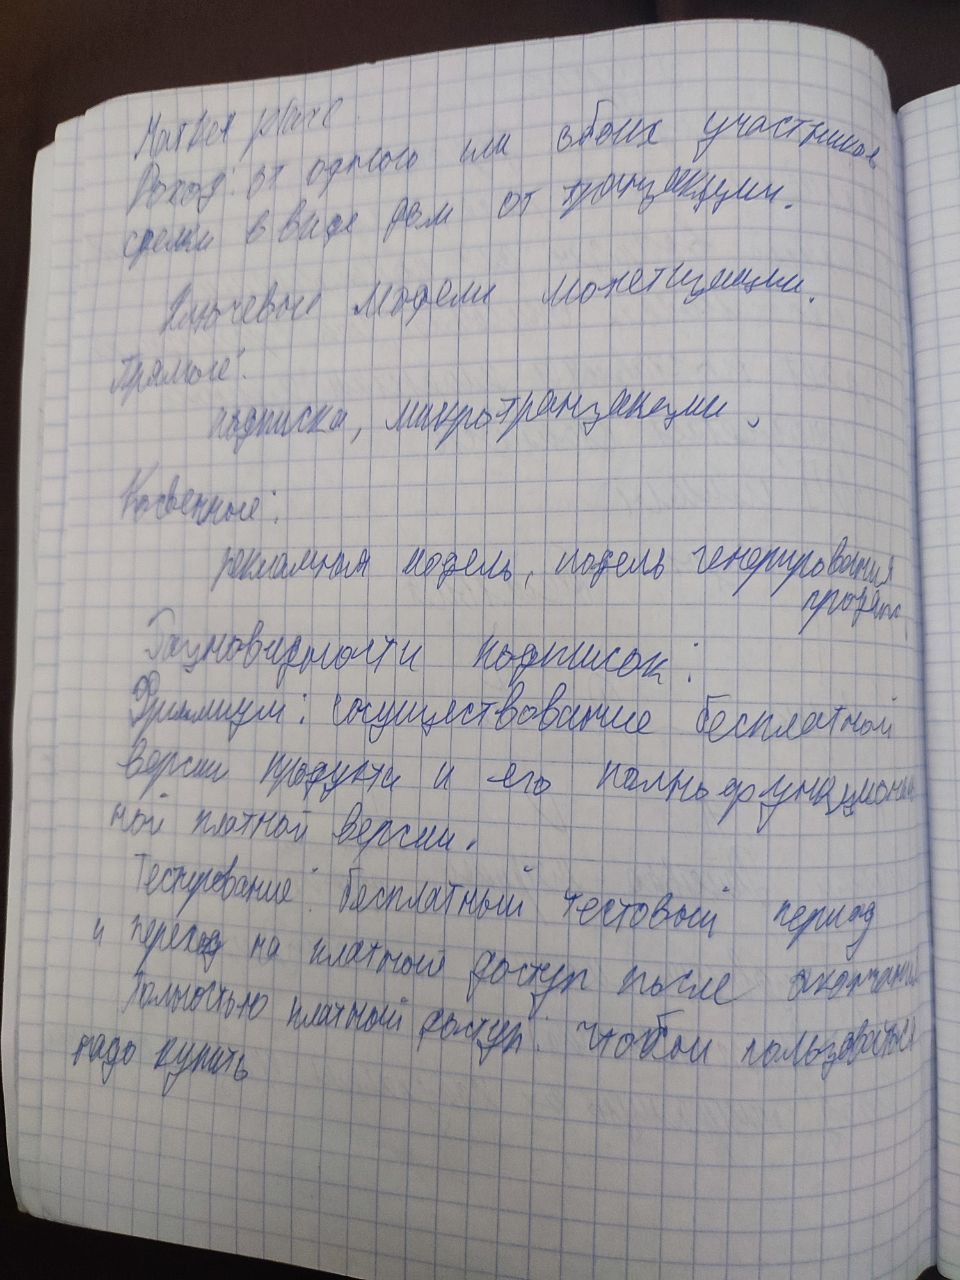 Market place
Доход: от одного или обоих участников
сделки в виде доли от транзакции.
Ключевые модели монетизации.
Прямые:
подписка, микротранзакции,
Косвенные:
рекламная модель, модель генерирования
продаж.
Разновидности подписок:
Фримиум: сосуществование бесплатной
версии продукта и его полнофункциональ
ной платной версии.
Тестирование: бесплатный тестовый период
и переход на платный доступ после окончания
Полностью платный доступ: чтобы пользоваться
надо купить